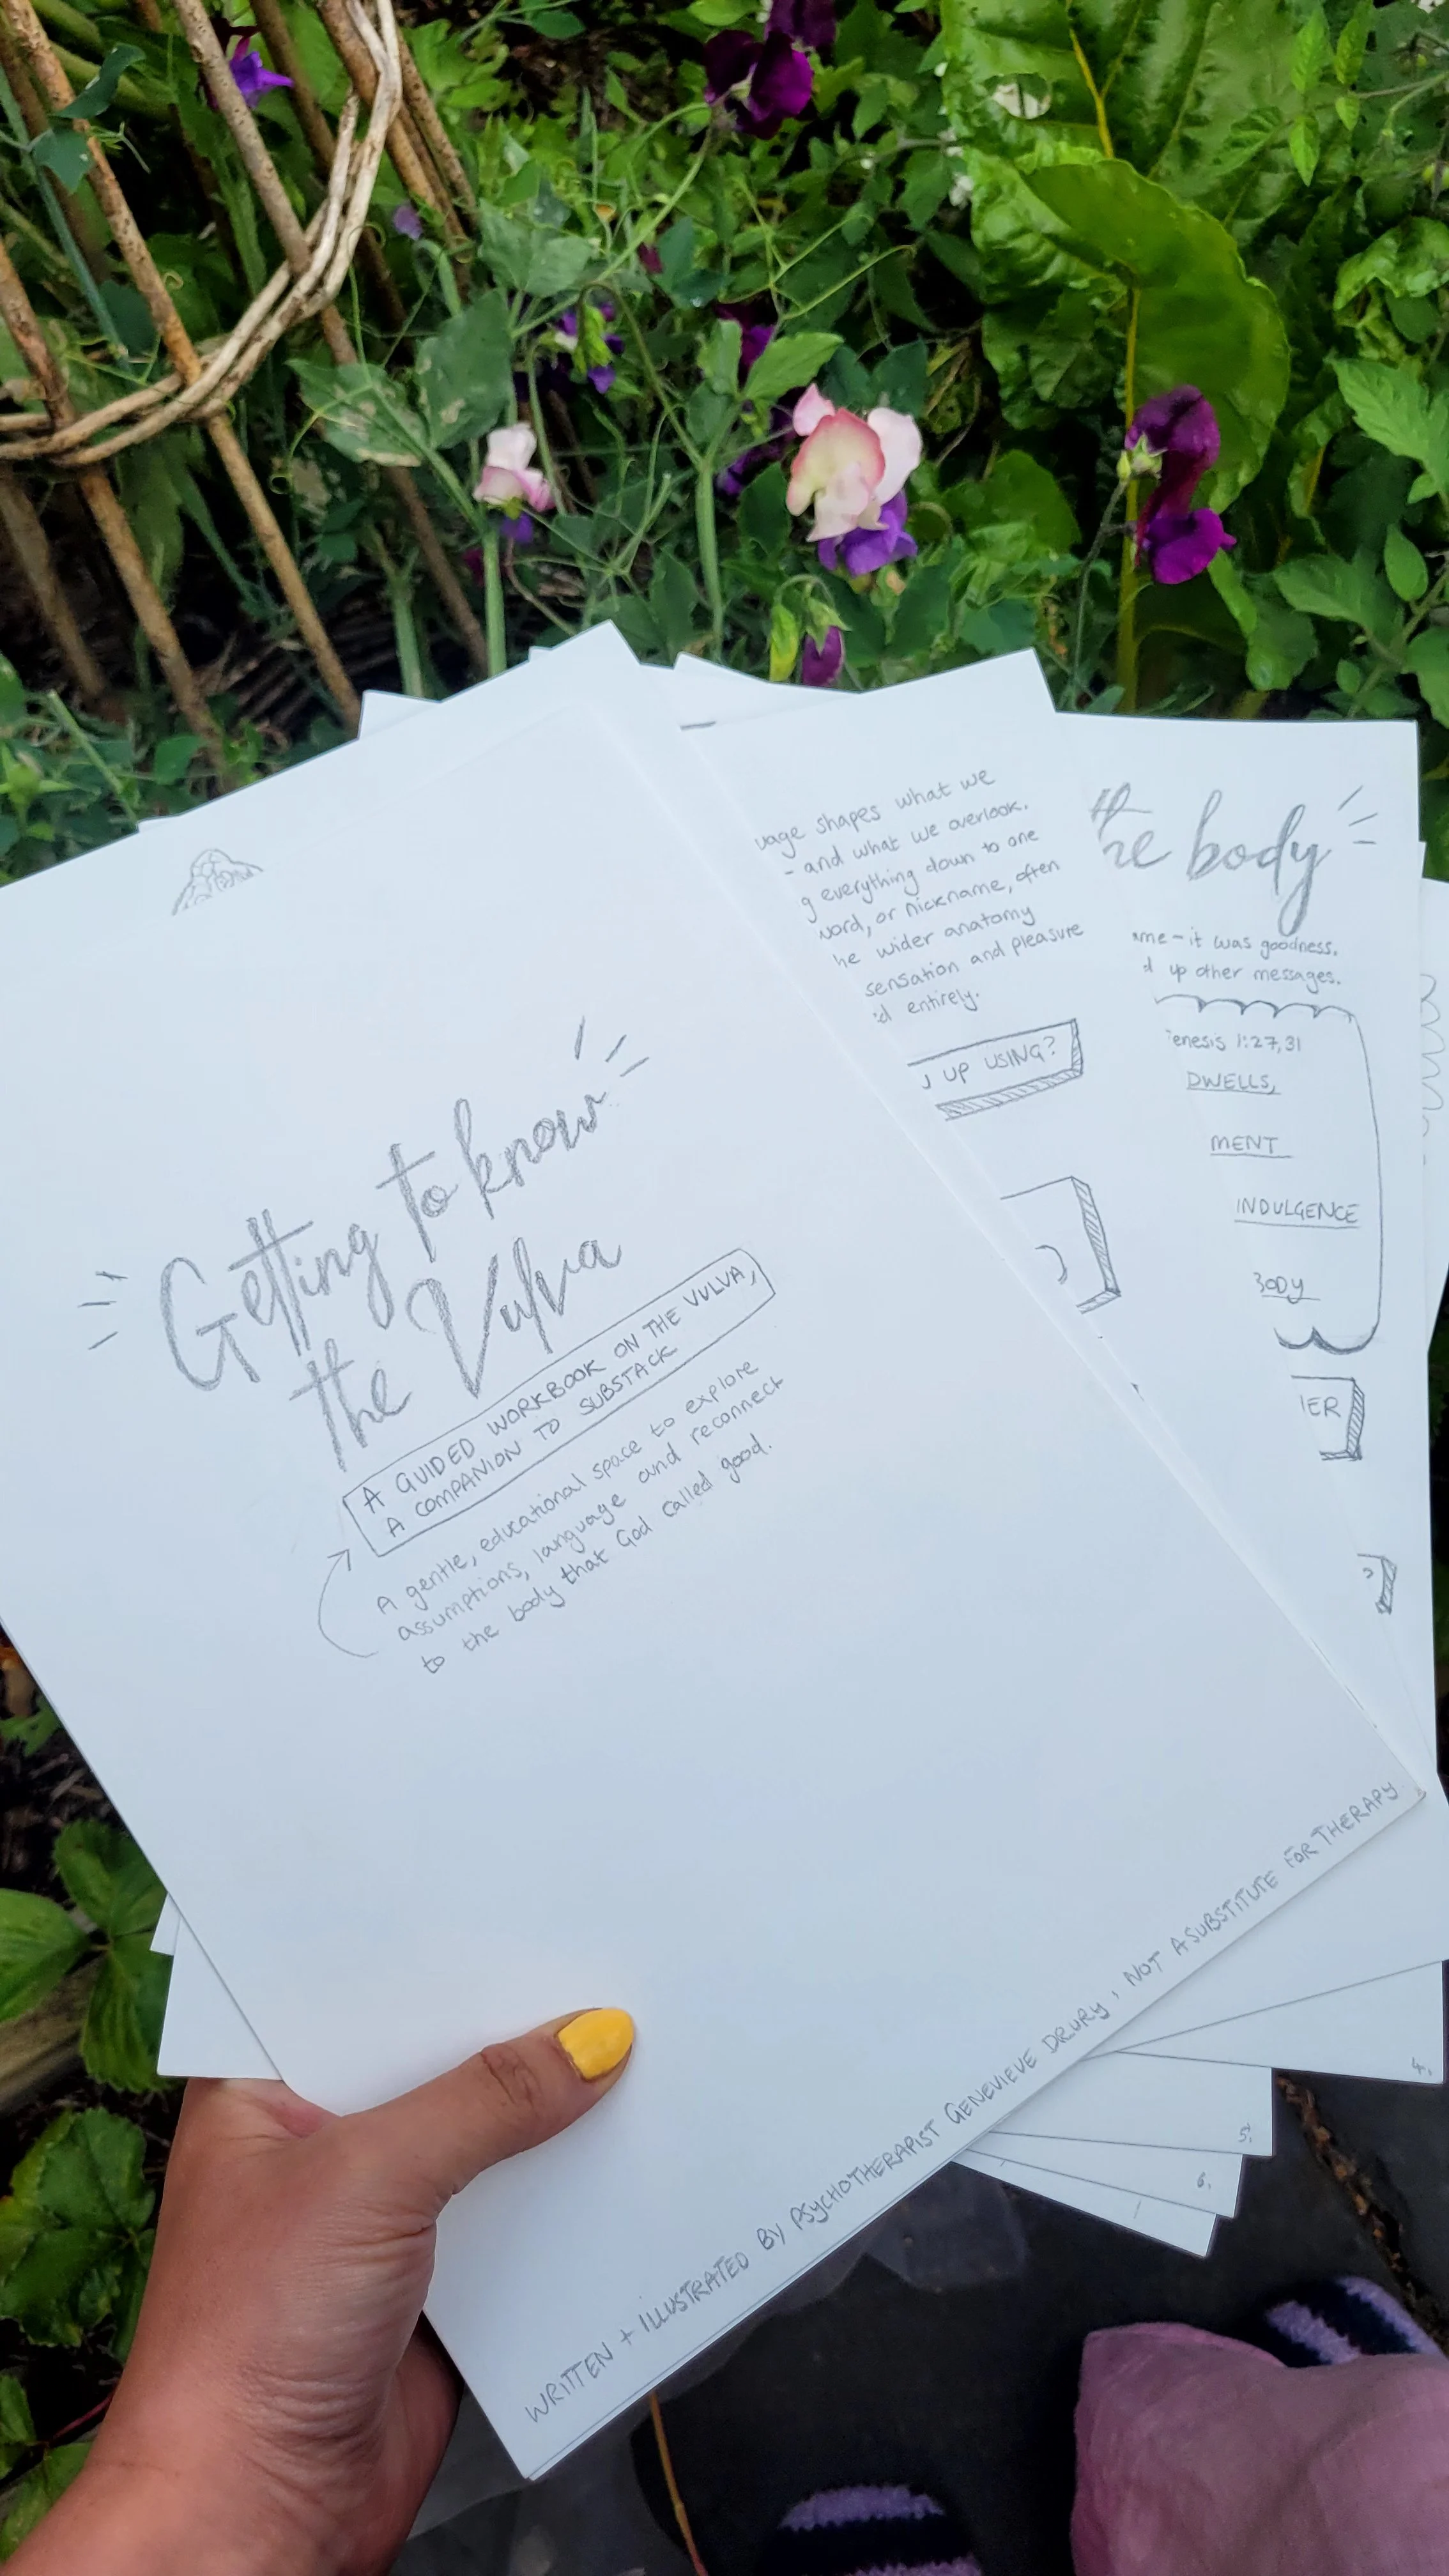 Getting to know
the Vulva
A GUIDED WORKBOOK ON THE VULVA,
A COMPANION TO SUBSTACK
A gentle, educational space to explore
assumptions, language and reconnect
to the body that God called good.
WRITTEN + ILLUSTRATED BY PSYCHOTHERAPIST GENEVIEVE DRURY, NOT A SUBSTITUTE FOR THERAPY.
uage shapes what we
- and what we overlook.
g everything down to one
word, or nickname, often
he wider anatomy
sensation and pleasure
d entirely.
UP USING?
the body
ame - it was goodness.
d up other messages.
enesis 1:27,31
DWELLS,
MENT
INDULGENCE
BODY
IER
?
4.
5.
6.